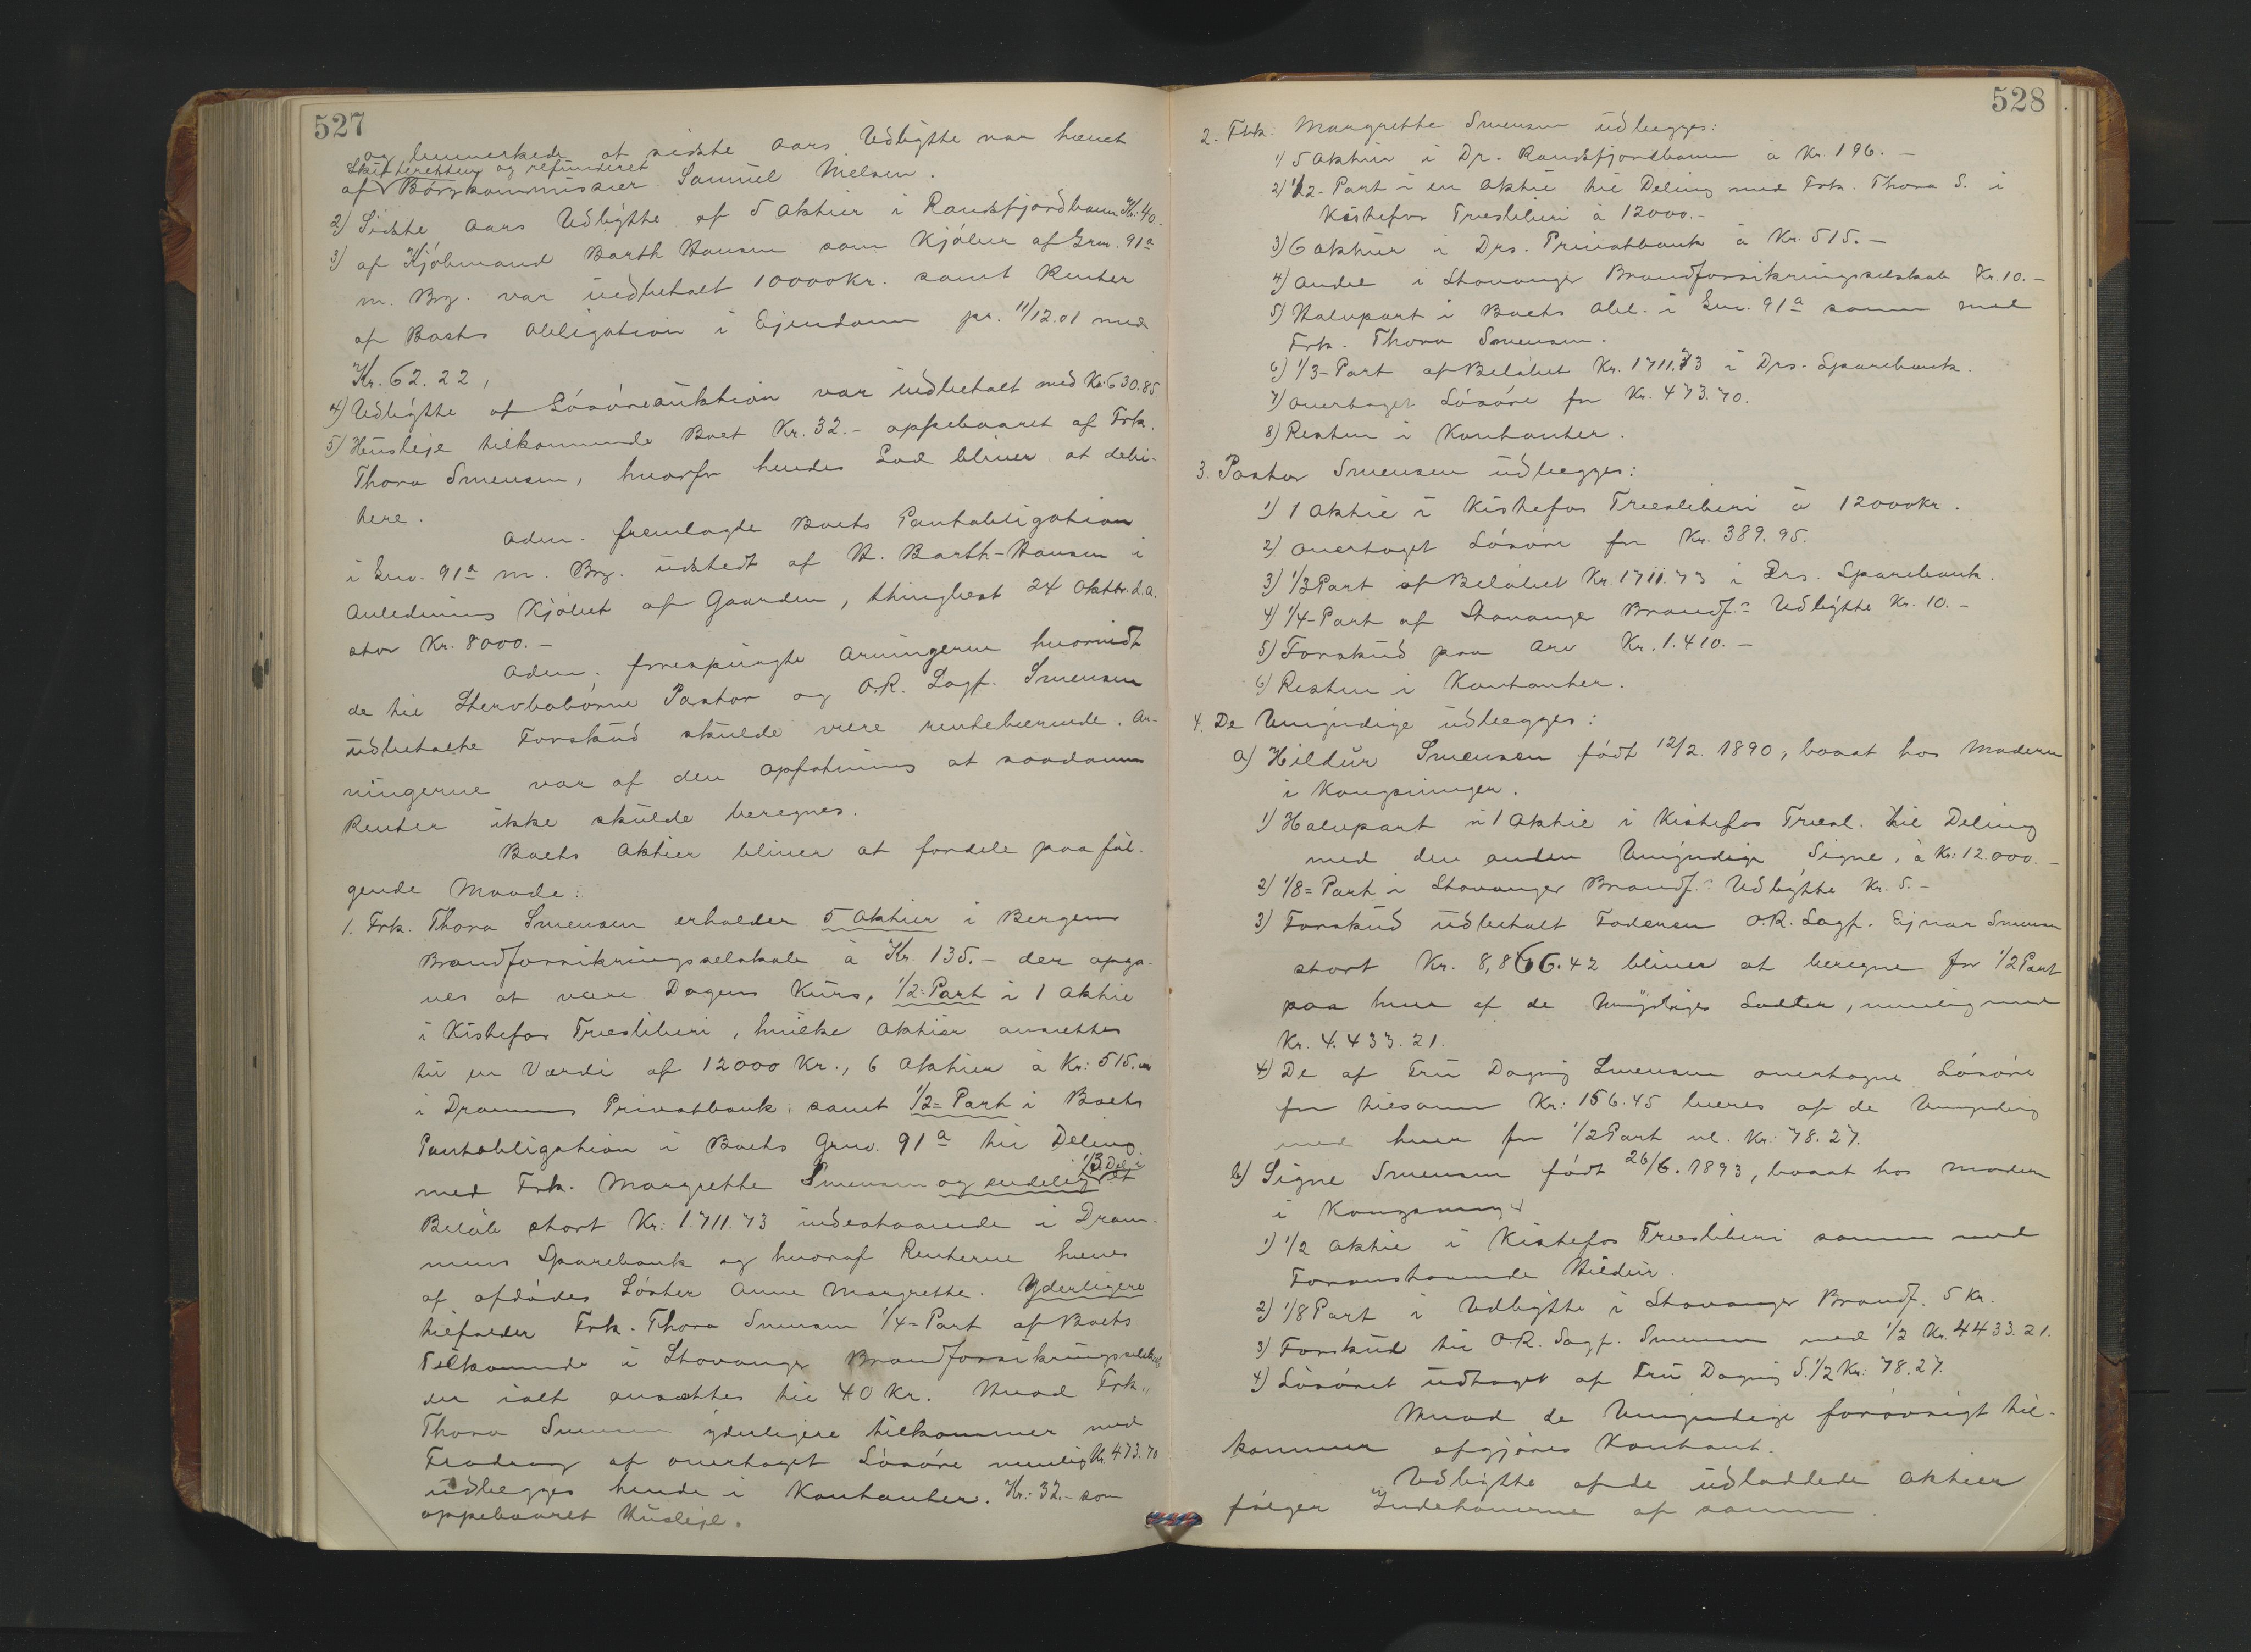 527
og bemerkede at sidste Aars Udbytte var hævet
Skifteretten og refunderet
af Børgkommissær Samuel Nielsen.
2) Sidste Aars Udbytte af 5 Aktier i Randsfjordbanen Kr. 40.
3) af Kjøbmand Barth Hansen som Kjøber af Grno. 91a
m. Brg. var indbetalt 10000 Kr. samt Renter
af Boets Obligation i Ejendommen pr. 11/12.01 med
Kr. 62.22,
4) Udbytte af Løsøreauktion var indbetalt med Kr. 630.85.
5) Husleje tilkommende Boet Kr. 32.- oppebaaret af Frk.
Thora Svensen, hvorfor hendes Lod bliver at debi-
tere.
Adm. fremlagde Boets Pantobligation
i Grno. 91a m. Brg. udstedt af H. Barth-Hansen i
Anledning Kjøbet af Gaarden, thinglæst 24 Oktbr. d.A.
stor Kr. 8000.-
Adm. forespurgte Arvingerne hvorvidt
de til Stervbobørne Pastor og O.R. Sagf. Svensen
udbetalte Forskud skulde være rentebærende. Ar-
vingerne var af den Opfatning at saadanne
Renter ikke skulde beregnes.
Boets Aktier bliver at fordele paa føl-
gende Maade:
1. Frk. Thora Svensen erholder 5 Aktier i Bergens
Brandforsikringsselskab à Kr. 135.- der opgi-
ves at være Dagens Kurs, 1/2-Part i 1 Aktie
i Kistefos Træsliberi, hvilke Aktier ansættes
til en Værdi af 12000 Kr., 6 Aktier à Kr: 515.-
i Drammens Privatbank, samt 1/2-Part i Boets
Pantobligation i Boets Grno. 91a til Deling
med Frk. Margrethe Svensen og endelig 1/3 Del i et
Beløb stort Kr: 1.711.73 indestaaende i Dram-
mens Sparebank og hvoraf Renterne hæves
af afdødes Søster Anne Margrethe. Yderligere
tilfalder Frk. Thora Svensen 1/4-Part af Boets
Tilkommende i Stavanger Brandforsikringsselskab
der ialt ansættes til 40 Kr. Hvad Frk.
Thora Svensen yderligere tilkommer med
Fradrag af overtaget Løsøre nemlig Kr. 473.70
udlægges hende i Kontanter. Kr: 32.- som
oppebaaret Husleje.
528
2. Frk. Margrethe Svensen udlægges:
1) 5 Aktier i Dr. Randsfjordbanen à Kr. 196.-
2) 1/2-Part i en Aktie til Deling med Frk. Thora S. i
Kistefos Træsliberi à 12000.-
3) 6 Aktier i Drs. Privatbank à Kr. 515.-
4) Andel i Stavanger Brandforsikringsselskab Kr. 10.-
5) Halvpart i Boets Obl. i Grno. 91a sammen med
Frk. Thora Svensen.
6) 1/3-Part af Beløbet Kr. 1711.73 i Drs. Sparebank.
7) Overtaget Løsøre for Kr. 473.70.
8) Resten i Kontanter.
3. Pastor Svensen udlægges:
1) 1 Aktie i Kistefos Træsliberi à 12000kr.
2) Overtaget Løsøre for Kr. 389.95.
3) 1/3 Part af Beløbet Kr. 1711.73 i Drs. Sparebank.
4) 1/4-Part af Stavanger Brandf.s Udbytte Kr. 10.-
5) Forskud paa Arv Kr. 1.410.-
6) Resten i Kontanter.
4. De Umyndige udlægges:
a) Hildur Svensen født 12/2. 1890, bosat hos Moderen
i Kongsvinger.
1) Halvpart i 1 Aktie i Kistefos Træsl. til Deling
med den anden Umyndige Signe, à Kr: 12.000.-
2) 1/8-Part i Stavanger Brandf.s Udbytte Kr. 5.-
3) Forskud udbetalt Faderen O.R. Sagf. Ejnar Svensen
stort Kr. 8,866.42 bliver at beregne for 1/2 Part
paa hver af de Umyndiges Lodder, nemlig med
Kr. 4.433.21.
4) De af Fru Dagny Svensen overtagne Løsøre
for tilsammen Kr: 156.45 bæres af de Umyndige
med hver for 1/2 Part nl. Kr: 78.27.
b) Signe Svensen født 26/6. 1893, bosat hos Moderen
i Kongsvinger
1) 1/2 Aktie i Kistefos Træsliberi sammen med
Foranstaaende Hildur.
2) 1/8 Part i Udbytte i Stavanger Brandf. 5 Kr.
3) Forskud til O.R. Sagf. Svensen med 1/2 Kr. 4433.21.
4) Løsøret udtaget af Fru Dagny S. 1/2 Kr: 78.27.
Hvad de Umyndige forøvrigt til-
kommer afgjøres Kontant.
Udbytte af de udloddede Aktier
følger Indehaverne af samme.